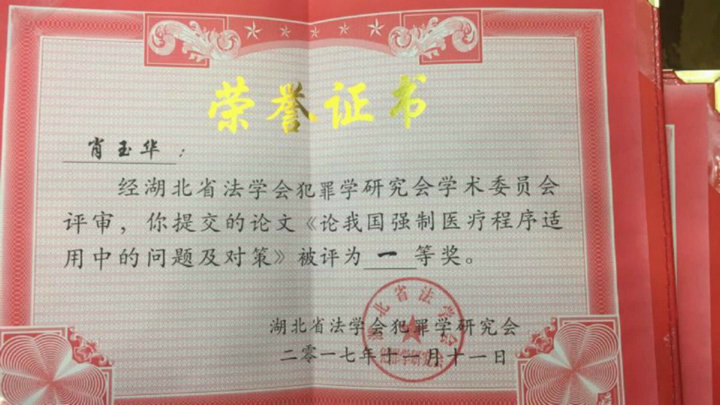 荣誉证书
肖玉华：
经湖北省法学会犯罪学研究会学术委员会
评审，你提交的论文《论我国强制医疗程序适
用中的问题及对策》被评为一等奖。
湖北省法学会
湖北省法学会犯罪学研究会
二零一七年十一月十一日